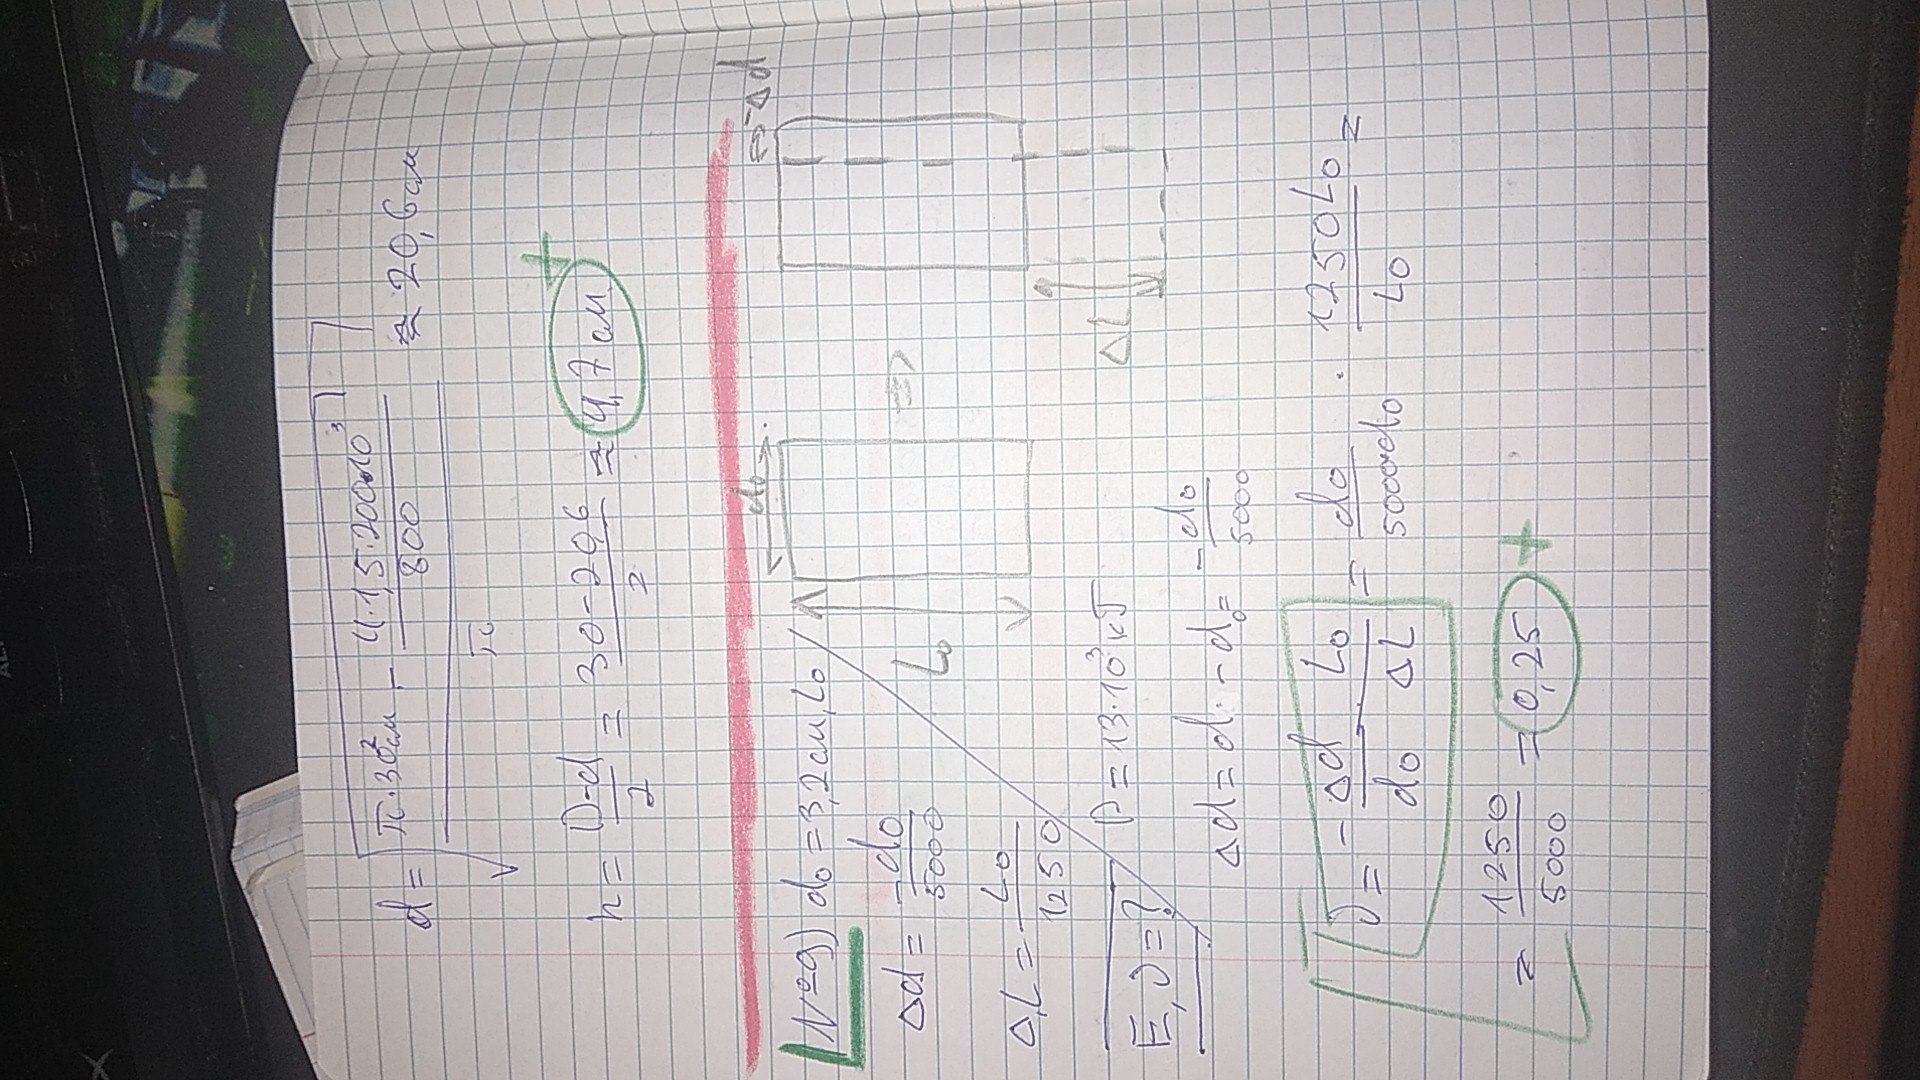 d = √((π·30²см - (4·1,5·200·10³)/800)/π) ≈ 20,6 см
h = (D-d)/2 = (30-20,6)/2 ≈ 4,7 см +
d₀
-Δd
№9) d₀ = 3,2 см, L₀
Δd = -d₀/5000
L₀
ΔL = L₀/1250
P = 13·10³ кГ
ΔL
E, ν = ?
Δd = d - d₀ = -d₀/5000
ν = -Δd/d₀ · L₀/ΔL = d₀/(5000·d₀) · 1250L₀/L₀ =
= 1250/5000 = 0,25 +